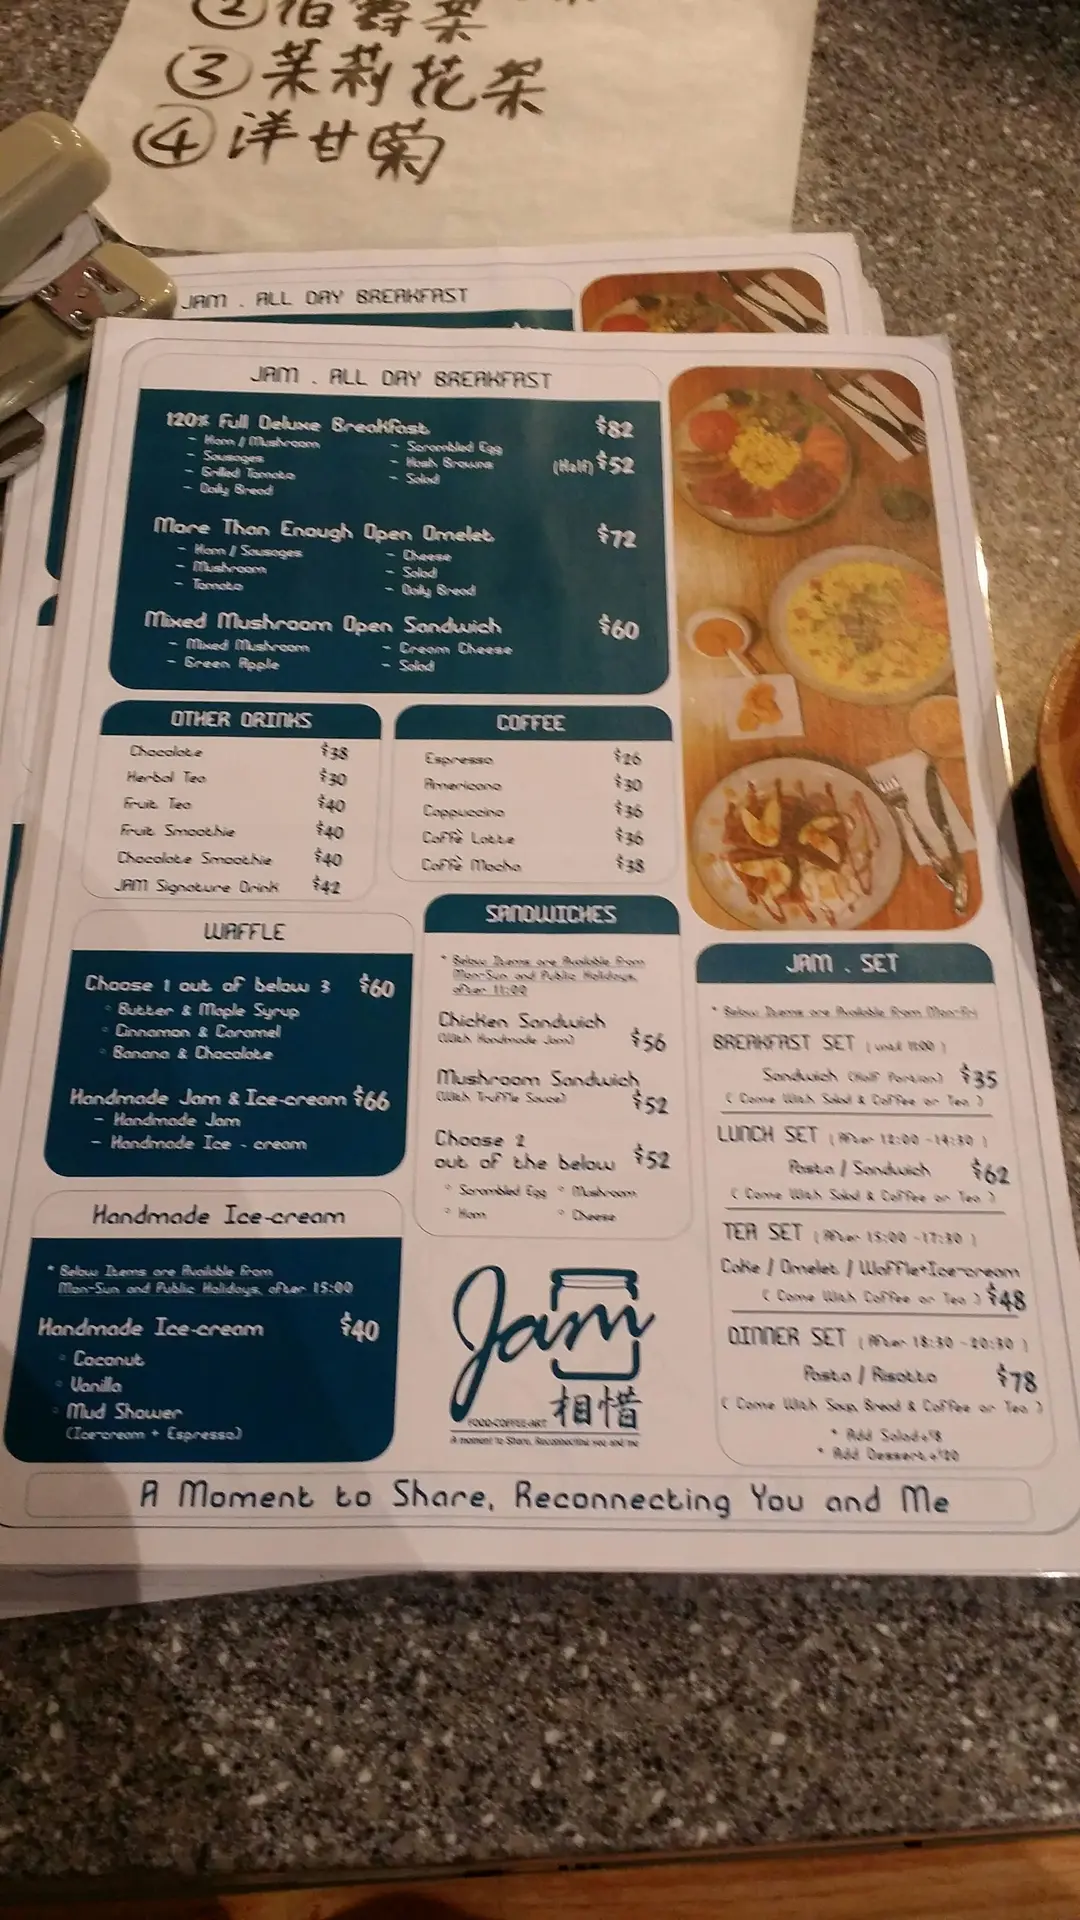 ②伯爵茶
③茉莉花茶
④洋甘菊
JAM . ALL DAY BREAKFAST
JAM . ALL DAY BREAKFAST
120% Full Deluxe Breakfast $82
- Ham / Mushroom
- Sausages
- Grilled Tomato
- Daily Bread
- Scrambled Egg
- Hash Browns
- Salad
(Half) $52
More Than Enough Open Omelet $72
- Ham / Sausages
- Mushroom
- Tomato
- Cheese
- Salad
- Daily Bread
Mixed Mushroom Open Sandwich $60
- Mixed Mushroom
- Green Apple
- Cream Cheese
- Salad
OTHER DRINKS
Chocolate $38
Herbal Tea $30
Fruit Tea $40
Fruit Smoothie $40
Chocolate Smoothie $40
JAM Signature Drink $42
COFFEE
Espresso $26
Americano $30
Cappuccino $36
Caffè Latte $36
Caffè Mocha $38
WAFFLE
Choose 1 out of below 3 $60
◦ Butter & Maple Syrup
◦ Cinnamon & Caramel
◦ Banana & Chocolate
Handmade Jam & Ice-cream $66
- Handmade Jam
- Handmade Ice - cream
Handmade Ice-cream
* Below Items are Available From
Mon-Sun and Public Holidays, after 15:00
Handmade Ice-cream $40
◦ Coconut
◦ Vanilla
◦ Mud Shower
(Ice-cream + Espresso)
SANDWICHES
* Below Items are Available From
Mon-Sun and Public Holidays,
after 11:00
Chicken Sandwich
(With Handmade Jam) $56
Mushroom Sandwich
(With Truffle Sauce) $52
Choose 2
out of the below $52
◦ Scrambled Egg ◦ Mushroom
◦ Ham ◦ Cheese
Jam
相惜
FOOD·COFFEE·ART
A moment to Share, Reconnecting you and me
JAM . SET
* Below Items are Available From Mon-Fri
BREAKFAST SET ( until 11:00 )
Sandwich (Half Portion) $35
( Come With Salad & Coffee or Tea )
LUNCH SET ( After 12:00 -14:30 )
Pasta / Sandwich $62
( Come With Salad & Coffee or Tea )
TEA SET ( After 15:00 -17:30 )
Cake / Omelet / Waffle+Ice-cream
( Come With Coffee or Tea ) $48
DINNER SET ( After 18:30 -20:30 )
Pasta / Risotto $78
( Come With Soup, Bread & Coffee or Tea )
* Add Salad+$8
* Add Dessert+$20
A Moment to Share, Reconnecting You and Me